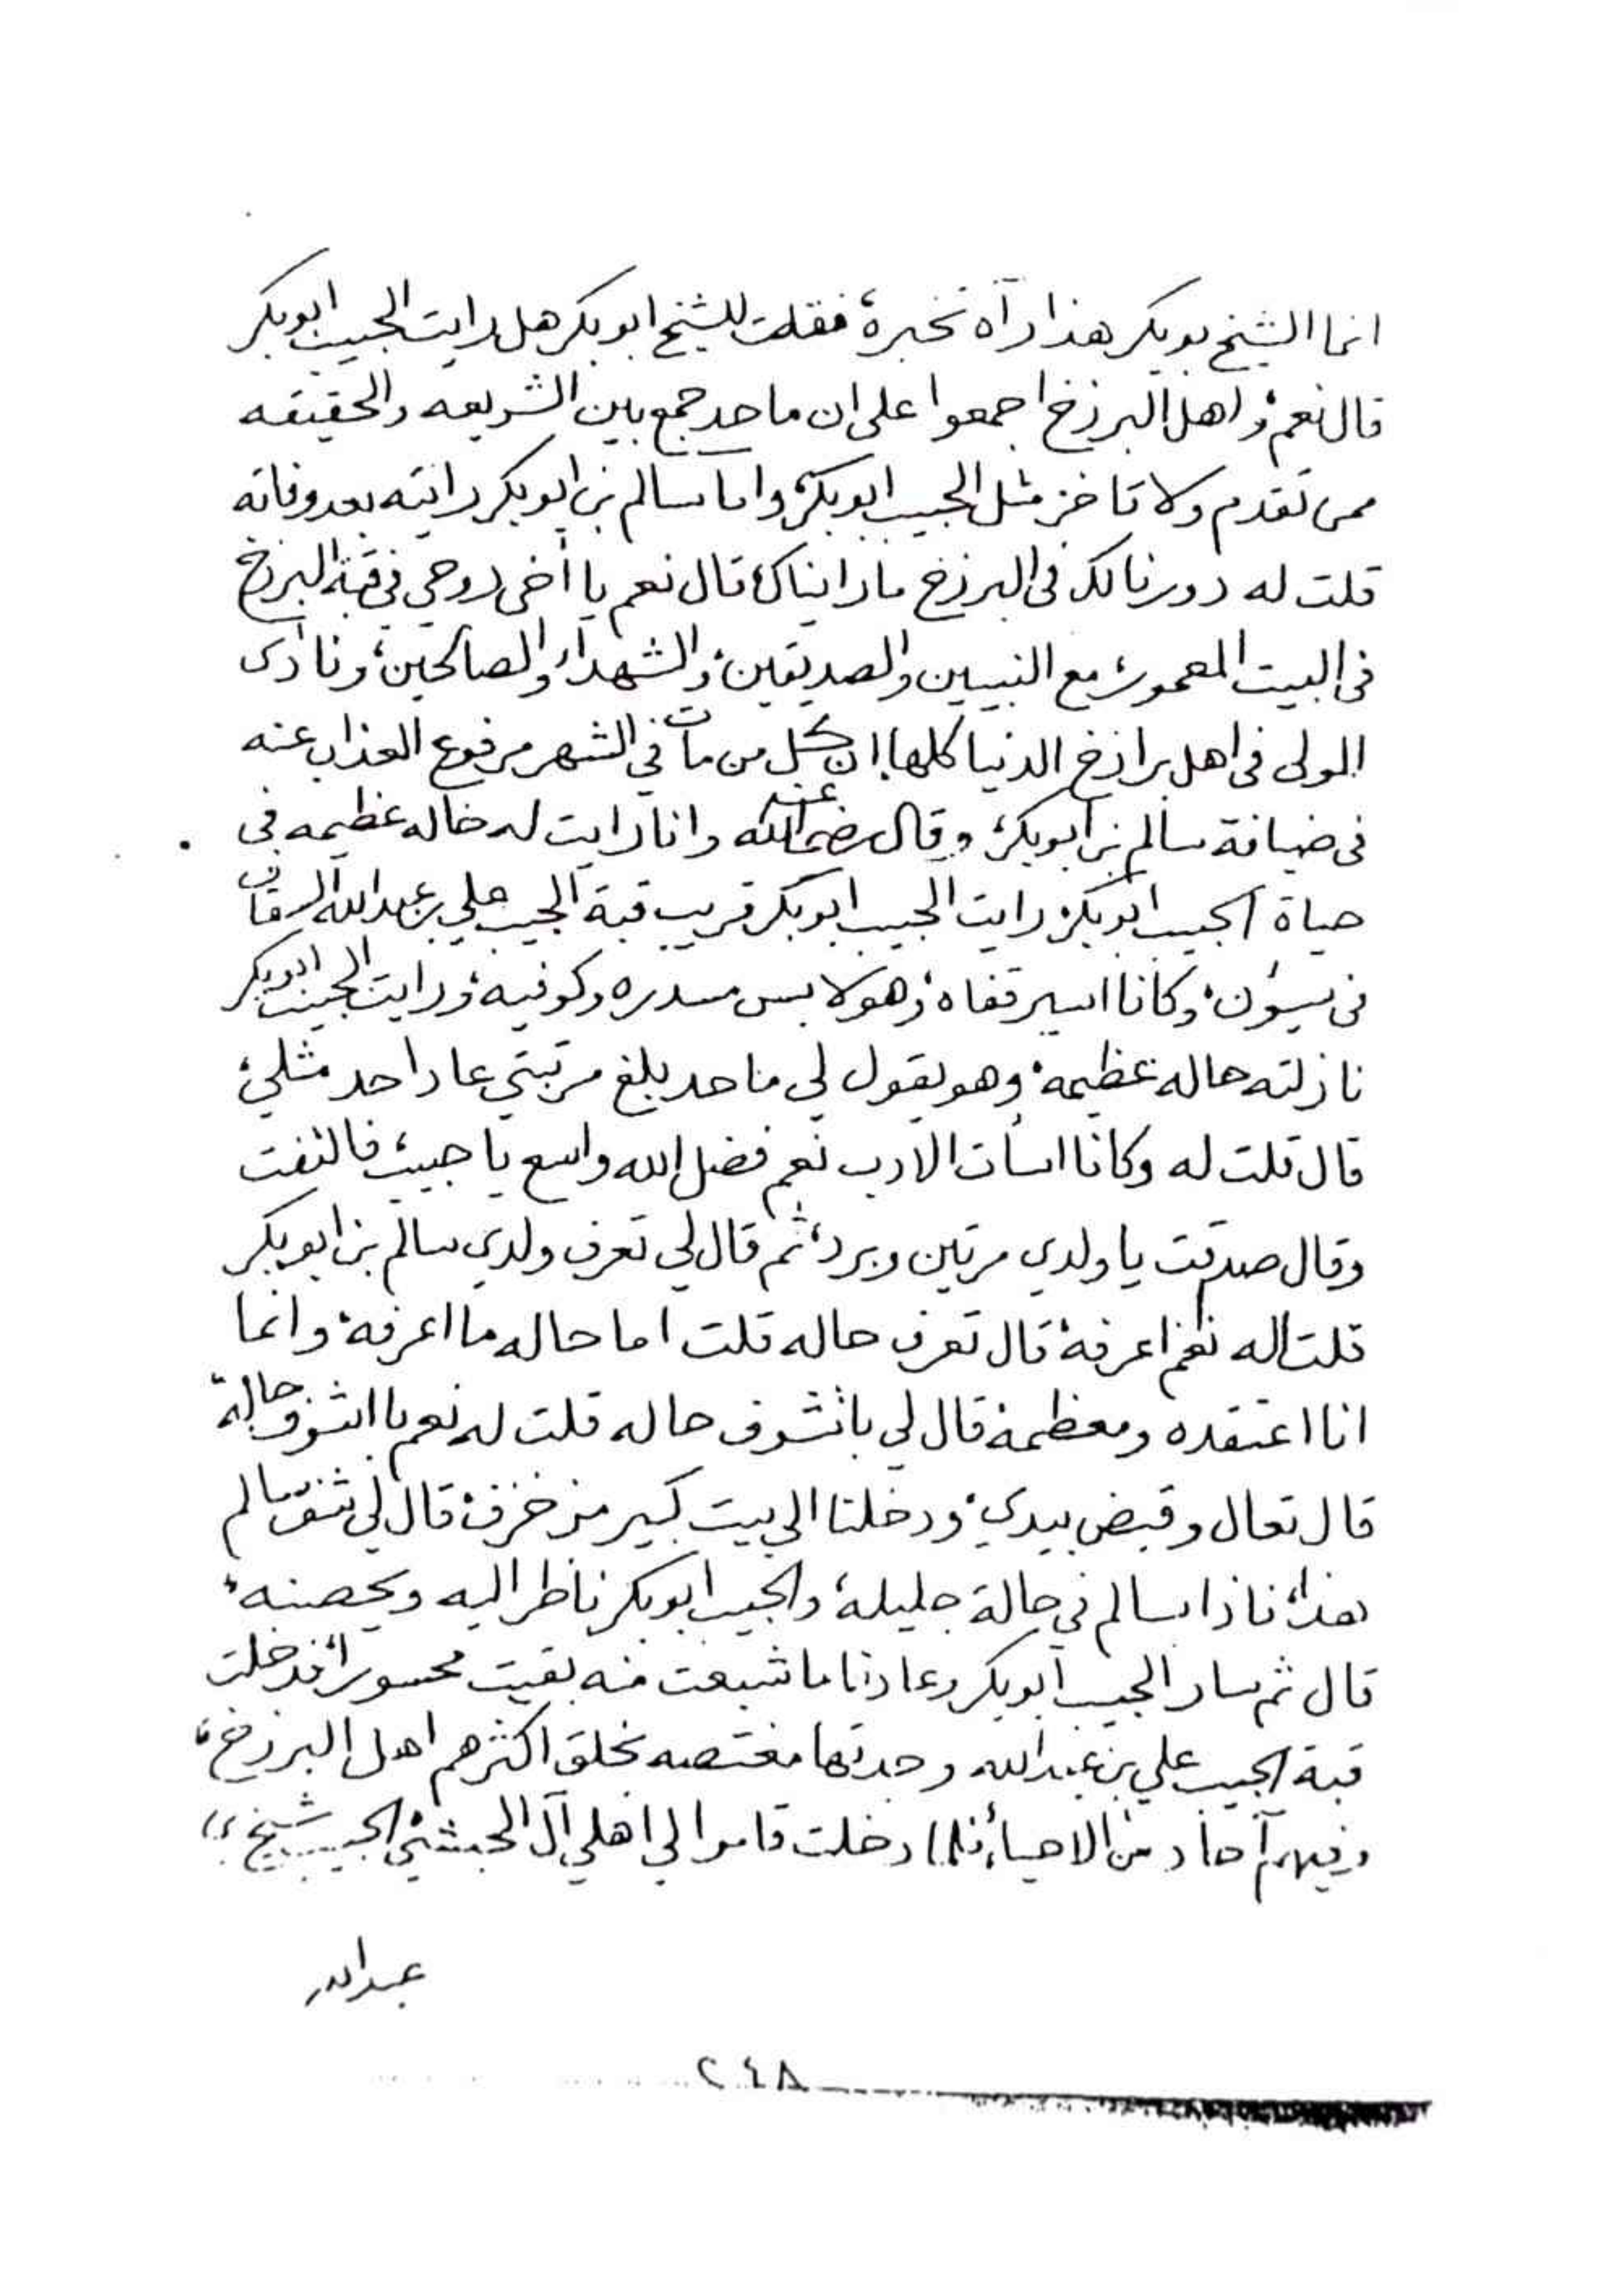 انما الشيخ بوبكر هذا رآه نخبره، فقلت للشيخ ابوبكر هل رايت الحبيب ابوبكر
قال نعم، واهل البرزخ اجمعوا على ان ماحد جمع بين الشريعه والحقيقه
ممن تقدم ولا تاخر مثل الحبيب ابوبكر، واما سالم بن ابوبكر رايته بعد وفاته
قلت له دورنا لك في البرزخ ماراايناك، قال نعم يا أخي روحي في قبة البرزخ
في البيت المعمور، مع النبيين والصديقين، والشهداء والصالحين، ونادى
المولى في اهل برازخ الدنيا كلها، ان كل من مات في الشهر مرفوع العذاب عنه
في ضيافة سالم بن ابوبكر، وقال رضي الله عنه وانا رايت له حاله عظيمه في
حياة الحبيب ابوبكر، رايت الحبيب ابوبكر قريب قبة الحبيب علي بن عبدالله السقاف
في سيؤن، وكانا اسير قفاه، وهو لابس مسدره وكوفيه، ورايت الحبيب ابوبكر
نازلته حاله عظيمه، وهو يقول لي ماحد بلغ مرتبتي عاد احد مثلي،
قال قلت له وكانا اسأت الادب نعم فضل الله واسع يا حبيب، فالتفت
وقال صدقت يا ولدي مرتين وبرد، ثم قال لي تعرف ولدي سالم بن ابوبكر
قلت له نعم اعرفه، قال تعرف حاله قلت اما حاله ما اعرفه، وانما
انا اعتقده ومعظمه، قال لي باتشوف حاله قلت له نعم بااشوف حاله،
قال تعال وقبض بيدي، ودخلنا الى بيت كبير مزخرف، قال لي شف سالم
هذا، فاذا سالم في حالة جليلة، والحبيب ابوبكر ناظر اليه ويحصنه،
قال ثم سار الحبيب ابوبكر وعادنا ما شبعت منه بقيت محسور، فدخلت
قبة الحبيب علي بن عبدالله وجدتها مغتصه بخلق اكثرهم اهل البرزخ،
وفيهم آحاد من الاحياء، فلما دخلت قاموا لي اهلي آل الحبشي، الحبيب شيخ
عبدالله
٢٤٨